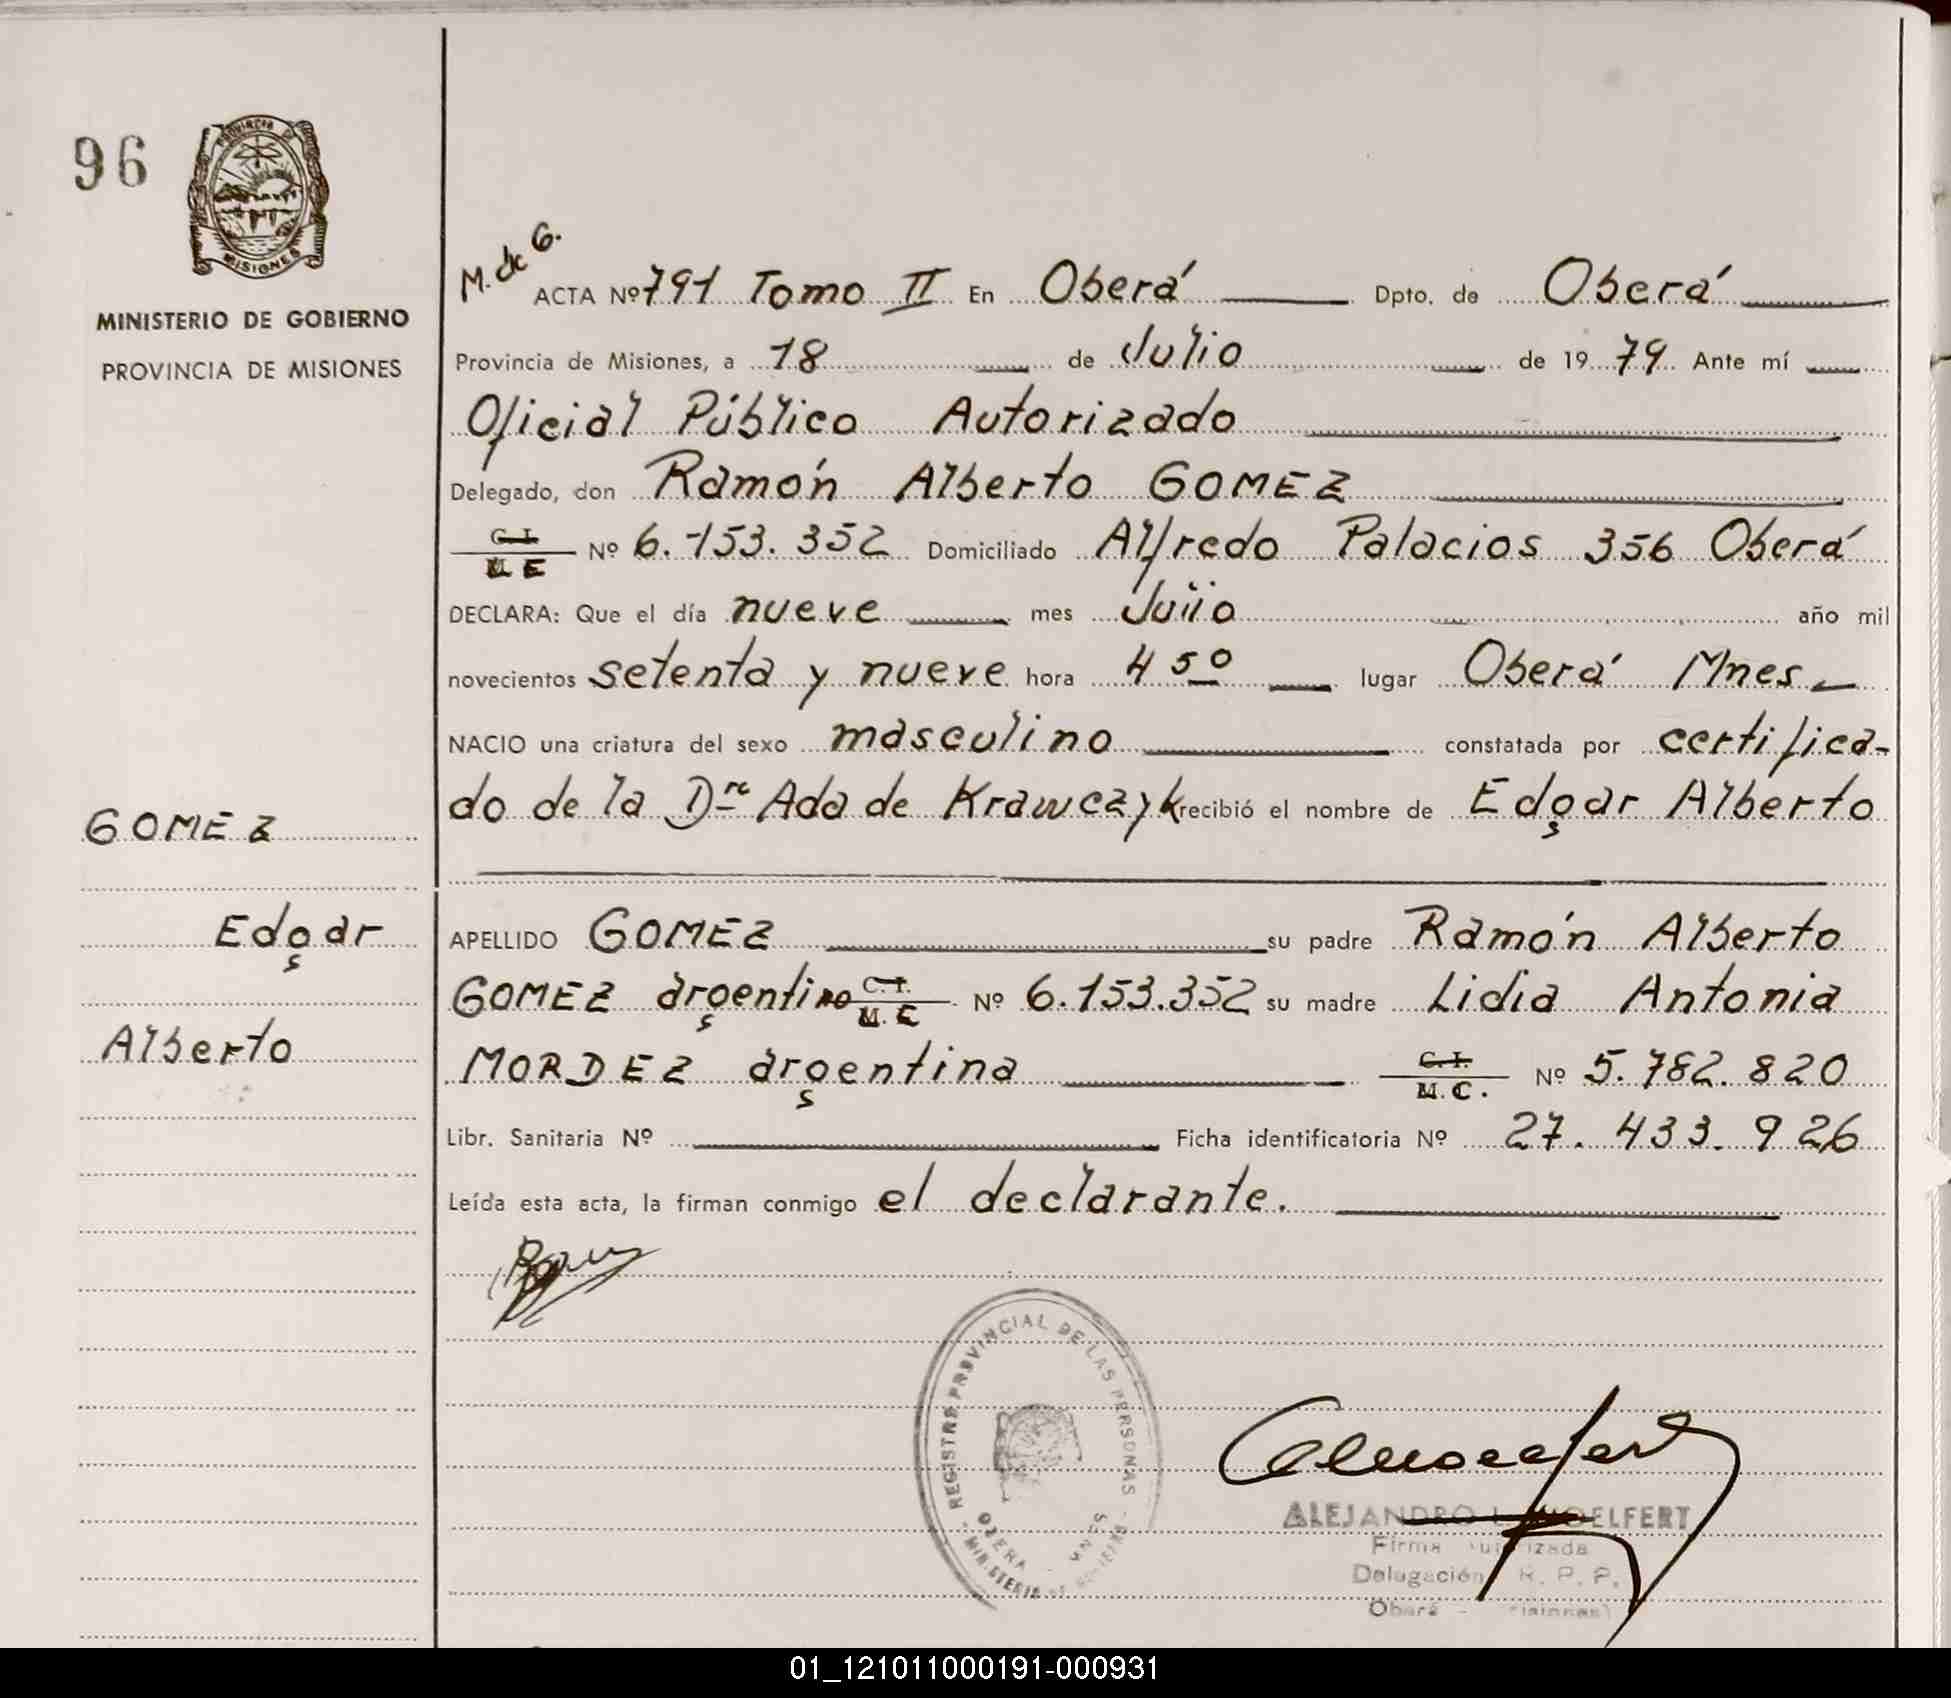 96
PROVINCIA DE
MISIONES
MINISTERIO DE GOBIERNO
PROVINCIA DE MISIONES
M. de G.
ACTA Nº 791 Tomo II En Oberá Dpto. de Oberá
Provincia de Misiones, a 18 de Julio de 1979 Ante mí
Oficial Público Autorizado
Delegado, don Ramón Alberto GOMEZ
C. I.
M E Nº 6.153.352 Domiciliado Alfredo Palacios 356 Oberá
DECLARA: Que el día nueve mes Julio año mil
novecientos setenta y nueve hora 4 50 lugar Oberá Mnes
NACIO una criatura del sexo masculino constatada por certifica-
do de la Dra Ada de Krawczyk recibió el nombre de Edgar Alberto
GOMEZ
Edgar
Alberto
APELLIDO GOMEZ su padre Ramón Alberto
GOMEZ argentino C. I.
M. E Nº 6.153.352 su madre Lidia Antonia
MORDEZ argentina C. I.
M. C. Nº 5.782.820
Libr. Sanitaria Nº Ficha identificatoria Nº 27.433.926
Leída esta acta, la firman conmigo el declarante.
REGISTRO PROVINCIAL DE LAS PERSONAS
OBERA MNES
MINISTERIO DE GOBIERNO
ALEJANDRO L. NOELFERT
Firma Autorizada
Delegación R. P. P.
Oberá - (Misiones)
01_121011000191-000931